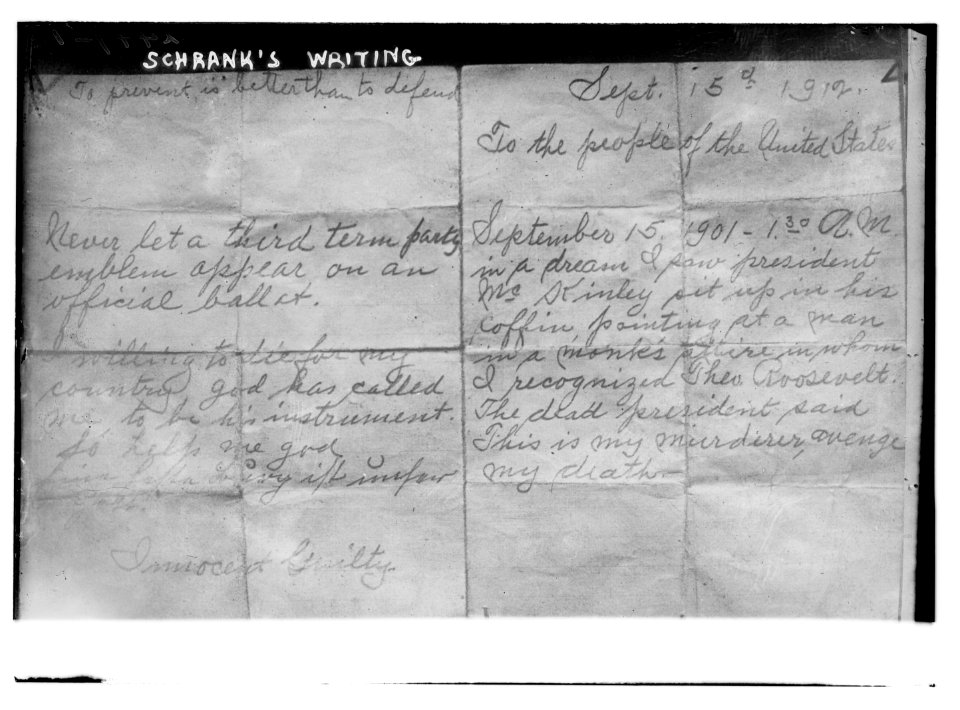 SCHRANK'S WRITING
To prevent is better than to defend
Never let a third term party
emblem appear on an
official ballot.
I willing to die for my
country god has called
me to be his instrument.
So help me god
Ein feste burg ist unser
Innocent Guilty
Sept. 15 d 1912.
To the people of the United States
September 15. 1901 - 1.30 A.M.
in a dream I saw president
Mc Kinley sit up in his
coffin, pointing at a man
in a monk's attire in whom
I recognized Theo. Roosevelt.
The dead president said
This is my murderer, avenge
my death